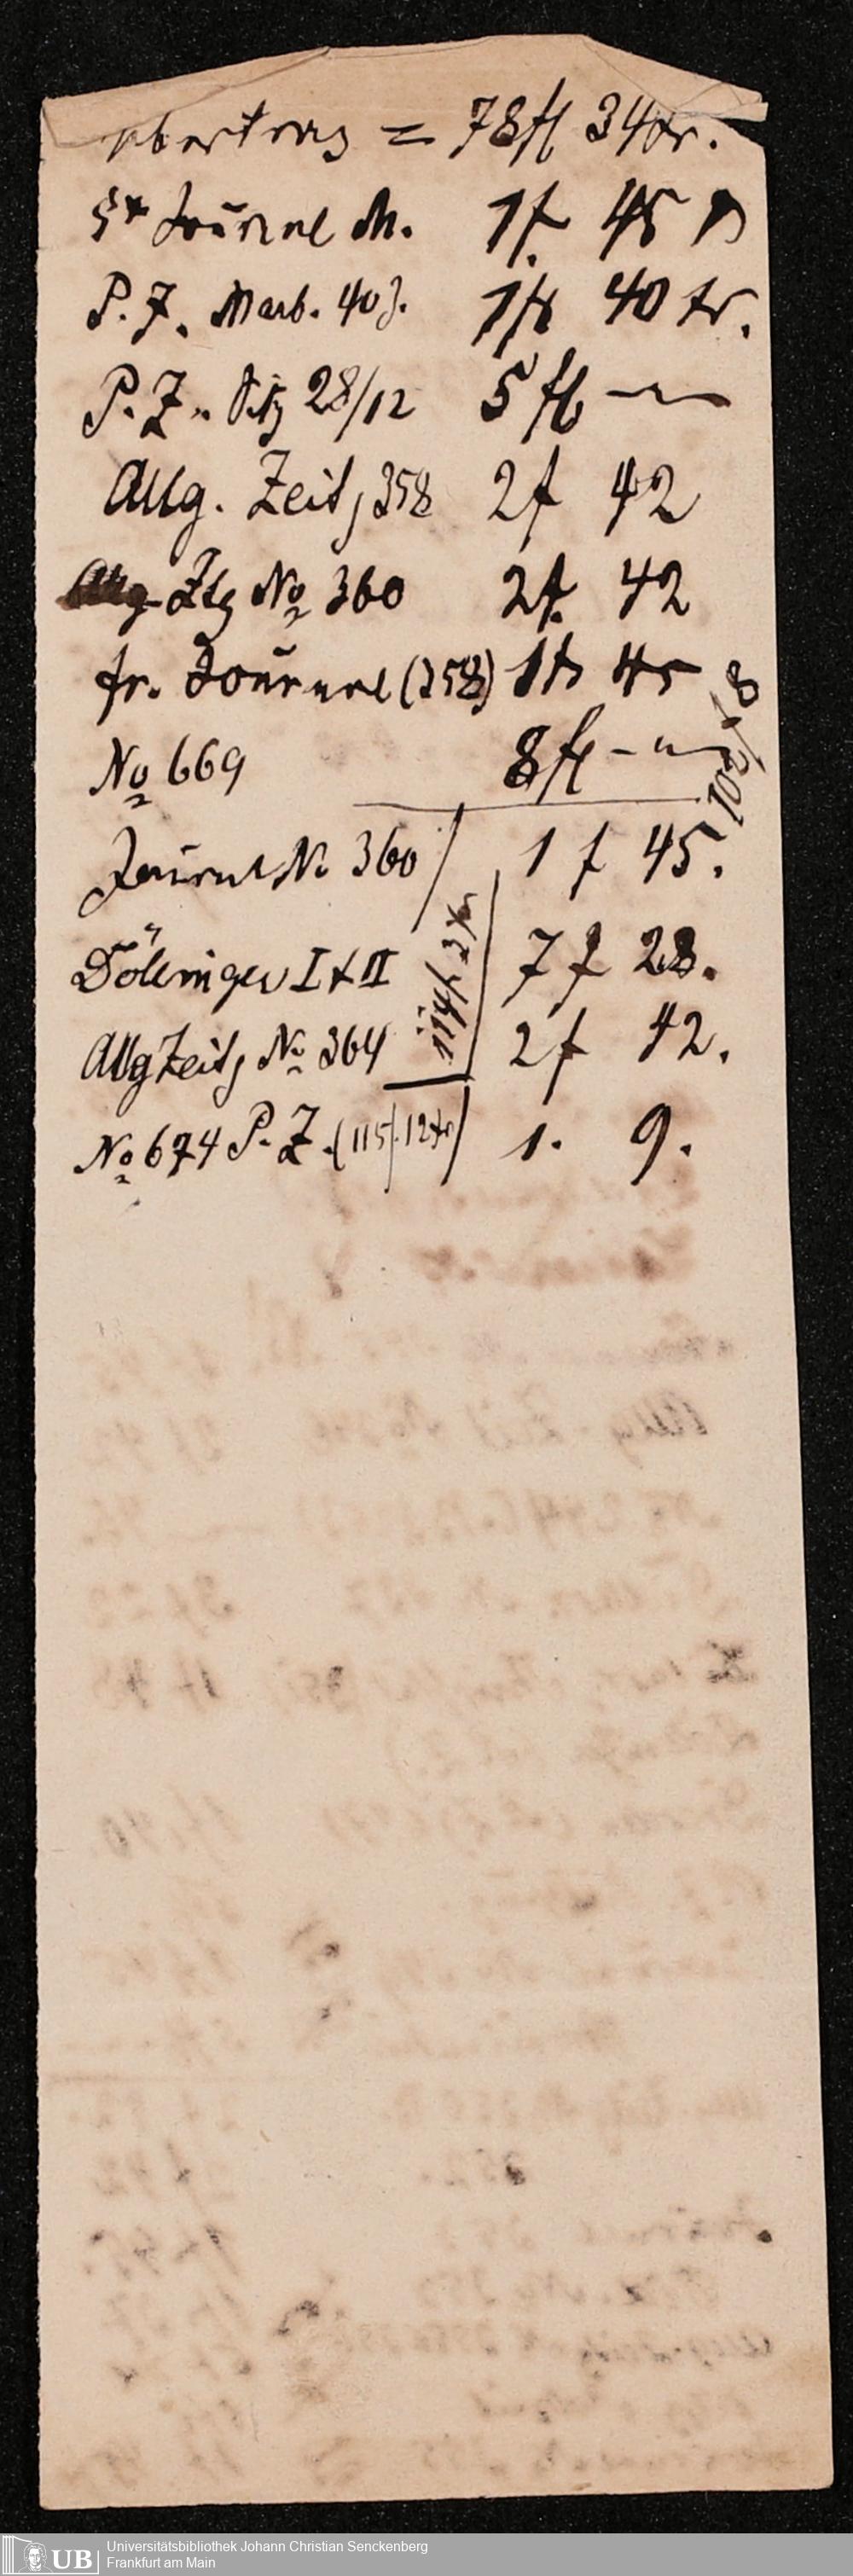 übertrag = 78 fl 34 kr.
Journal M. 1 f. 45
P. Z. Marb. 40 J. 1 fl 40 kr.
P. Z. 28/12 5 fl —"—
Allg. Zeitg 358 2 f 42
Allg Ztg No 360 2 f. 42
fr. Journal (358) 1 fl 45
No 669 8 fl —"—
102 f 8
Journal No 360 1 f 45.
Döllinger I + II 7 f 28.
114 f. 3 kr
Allg Zeitg No. 364 2 f 42.
No 674 P. Z. (115 f. 12 kr) 1. 9.
UB
Universitätsbibliothek Johann Christian Senckenberg
Frankfurt am Main